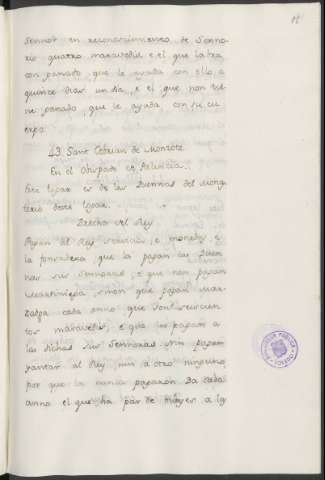 Sennor en reconoscimiento de Senno-
rio quatro maravedis e el que labra
con panado que le ayuda con ello a
quince dias un dia, e el que non tie-
ne panado, que le ayuda con su cu
erpo.
43. Sant Cebrian de
En el Obispado de Palencia.
Este logar es de las Duennas del Mong
terio deste logar.
Derecho del Rey
Pagan al Rey servicios, e moneda, e
la fonsadera que la pagan las Duen
nas sus Sennoras, e que non pagan
, sinon que pagan mar-
zazga cada anno que son seiscien
tos maravedis, e que los pagan a
las dichas sus Sennoras non pagan
yantar al Rey, nin a otro ninguno,
por que la nunca pagaron. Da cada
anno el que ha par de Bueyes a la
BIBLIOTECA